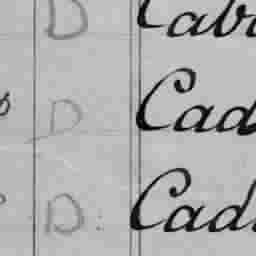 D Cab
D Cad
D. Cad